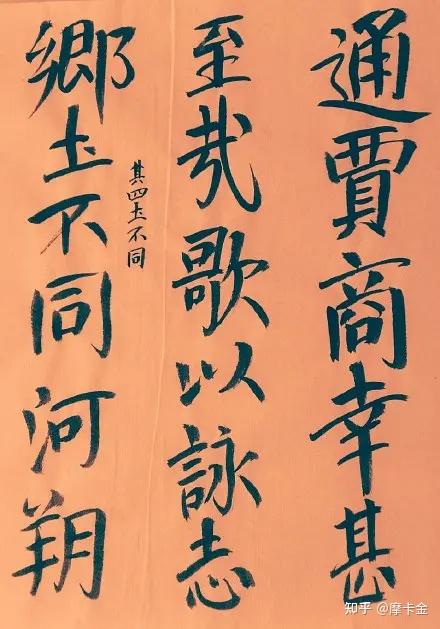 通賈商幸甚
至哉歌以詠志
其四土不同
鄉土不同河朔
知乎 @摩卡金